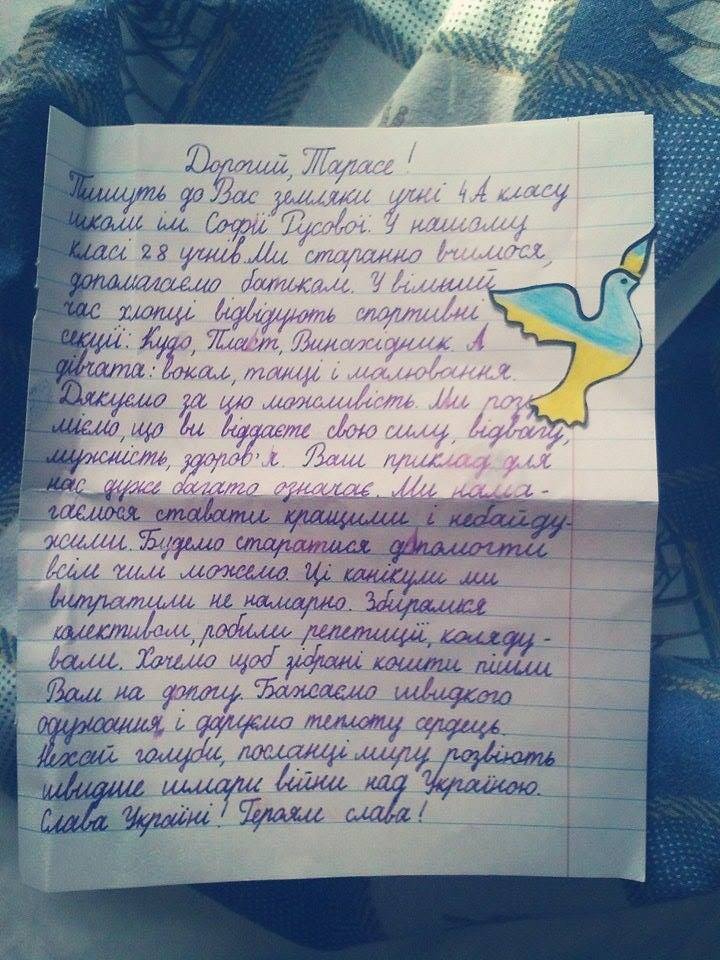 Дорогий, Тарасе!
Пишуть до Вас земляки учні 4А класу
школи ім. Софії Русової. У нашому
класі 28 учнів. Ми старанно вчимося,
допомагаємо батькам. У вільний
час хлопці відвідують спортивні
секції: Кудо, Пласт, Винахідник. А
дівчата: вокал, танці і малювання.
Дякуємо за цю можливість. Ми розу
міємо, що ви віддаєте свою силу, відвагу,
мужність, здоров'я. Ваш приклад для
нас дуже багато означає. Ми нама-
гаємося ставати кращими і небайду-
жими. Будемо старатися допомогти
всім чим можемо. Ці канікули ми
витратили не намарно. Збиралися
колективом, робили репетиції, коляду-
вали. Хочемо щоб зібрані кошти пішли
Вам на допогу. Бажаємо швидкого
одужання, і даруємо теплоту сердець.
Нехай голуби, посланці миру розвіють
швидше хмари війни над Україною.
Слава Україні! Героям слава!